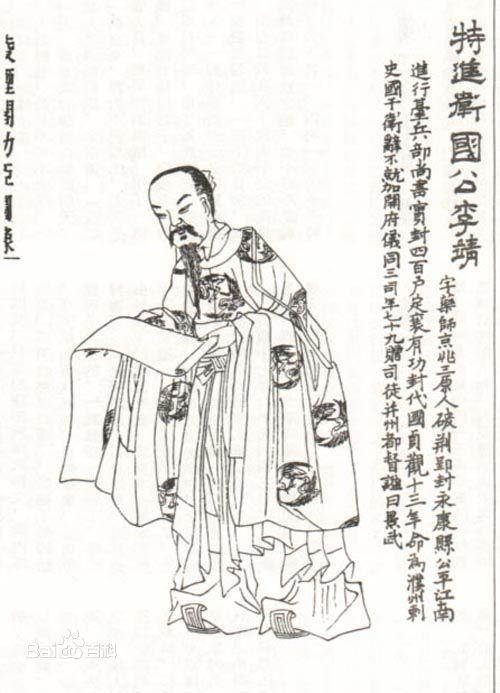 特進衛國公李靖
字藥師京兆三原人破荆郢封永康縣公平江南
進行臺兵部尚書實封四百户定襄有功封代國貞觀十三年命為濮州刺
史國于衛辭不就加開府儀同三司年七十九贈司徒并州都督諡曰景武
凌煙閣功臣圖像
Baidu百科